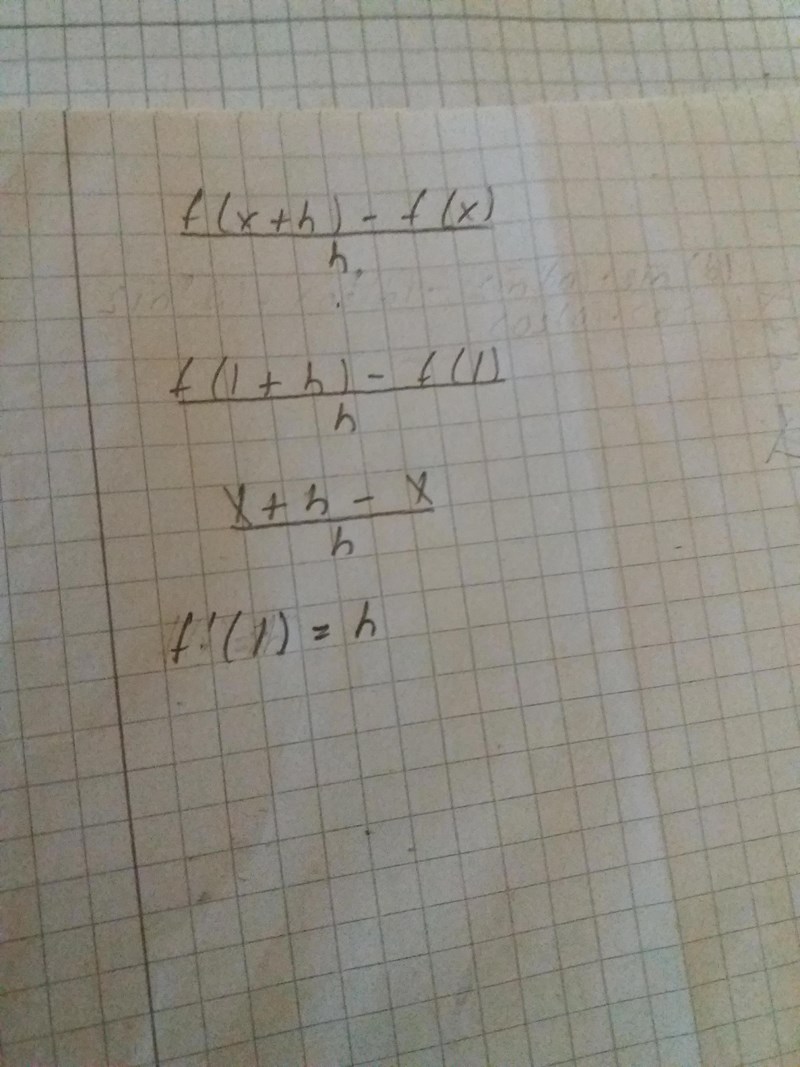 f(x+h) - f(x)
h
f(1+h) - f(1)
h
x+h - x
h
f'(1) = h